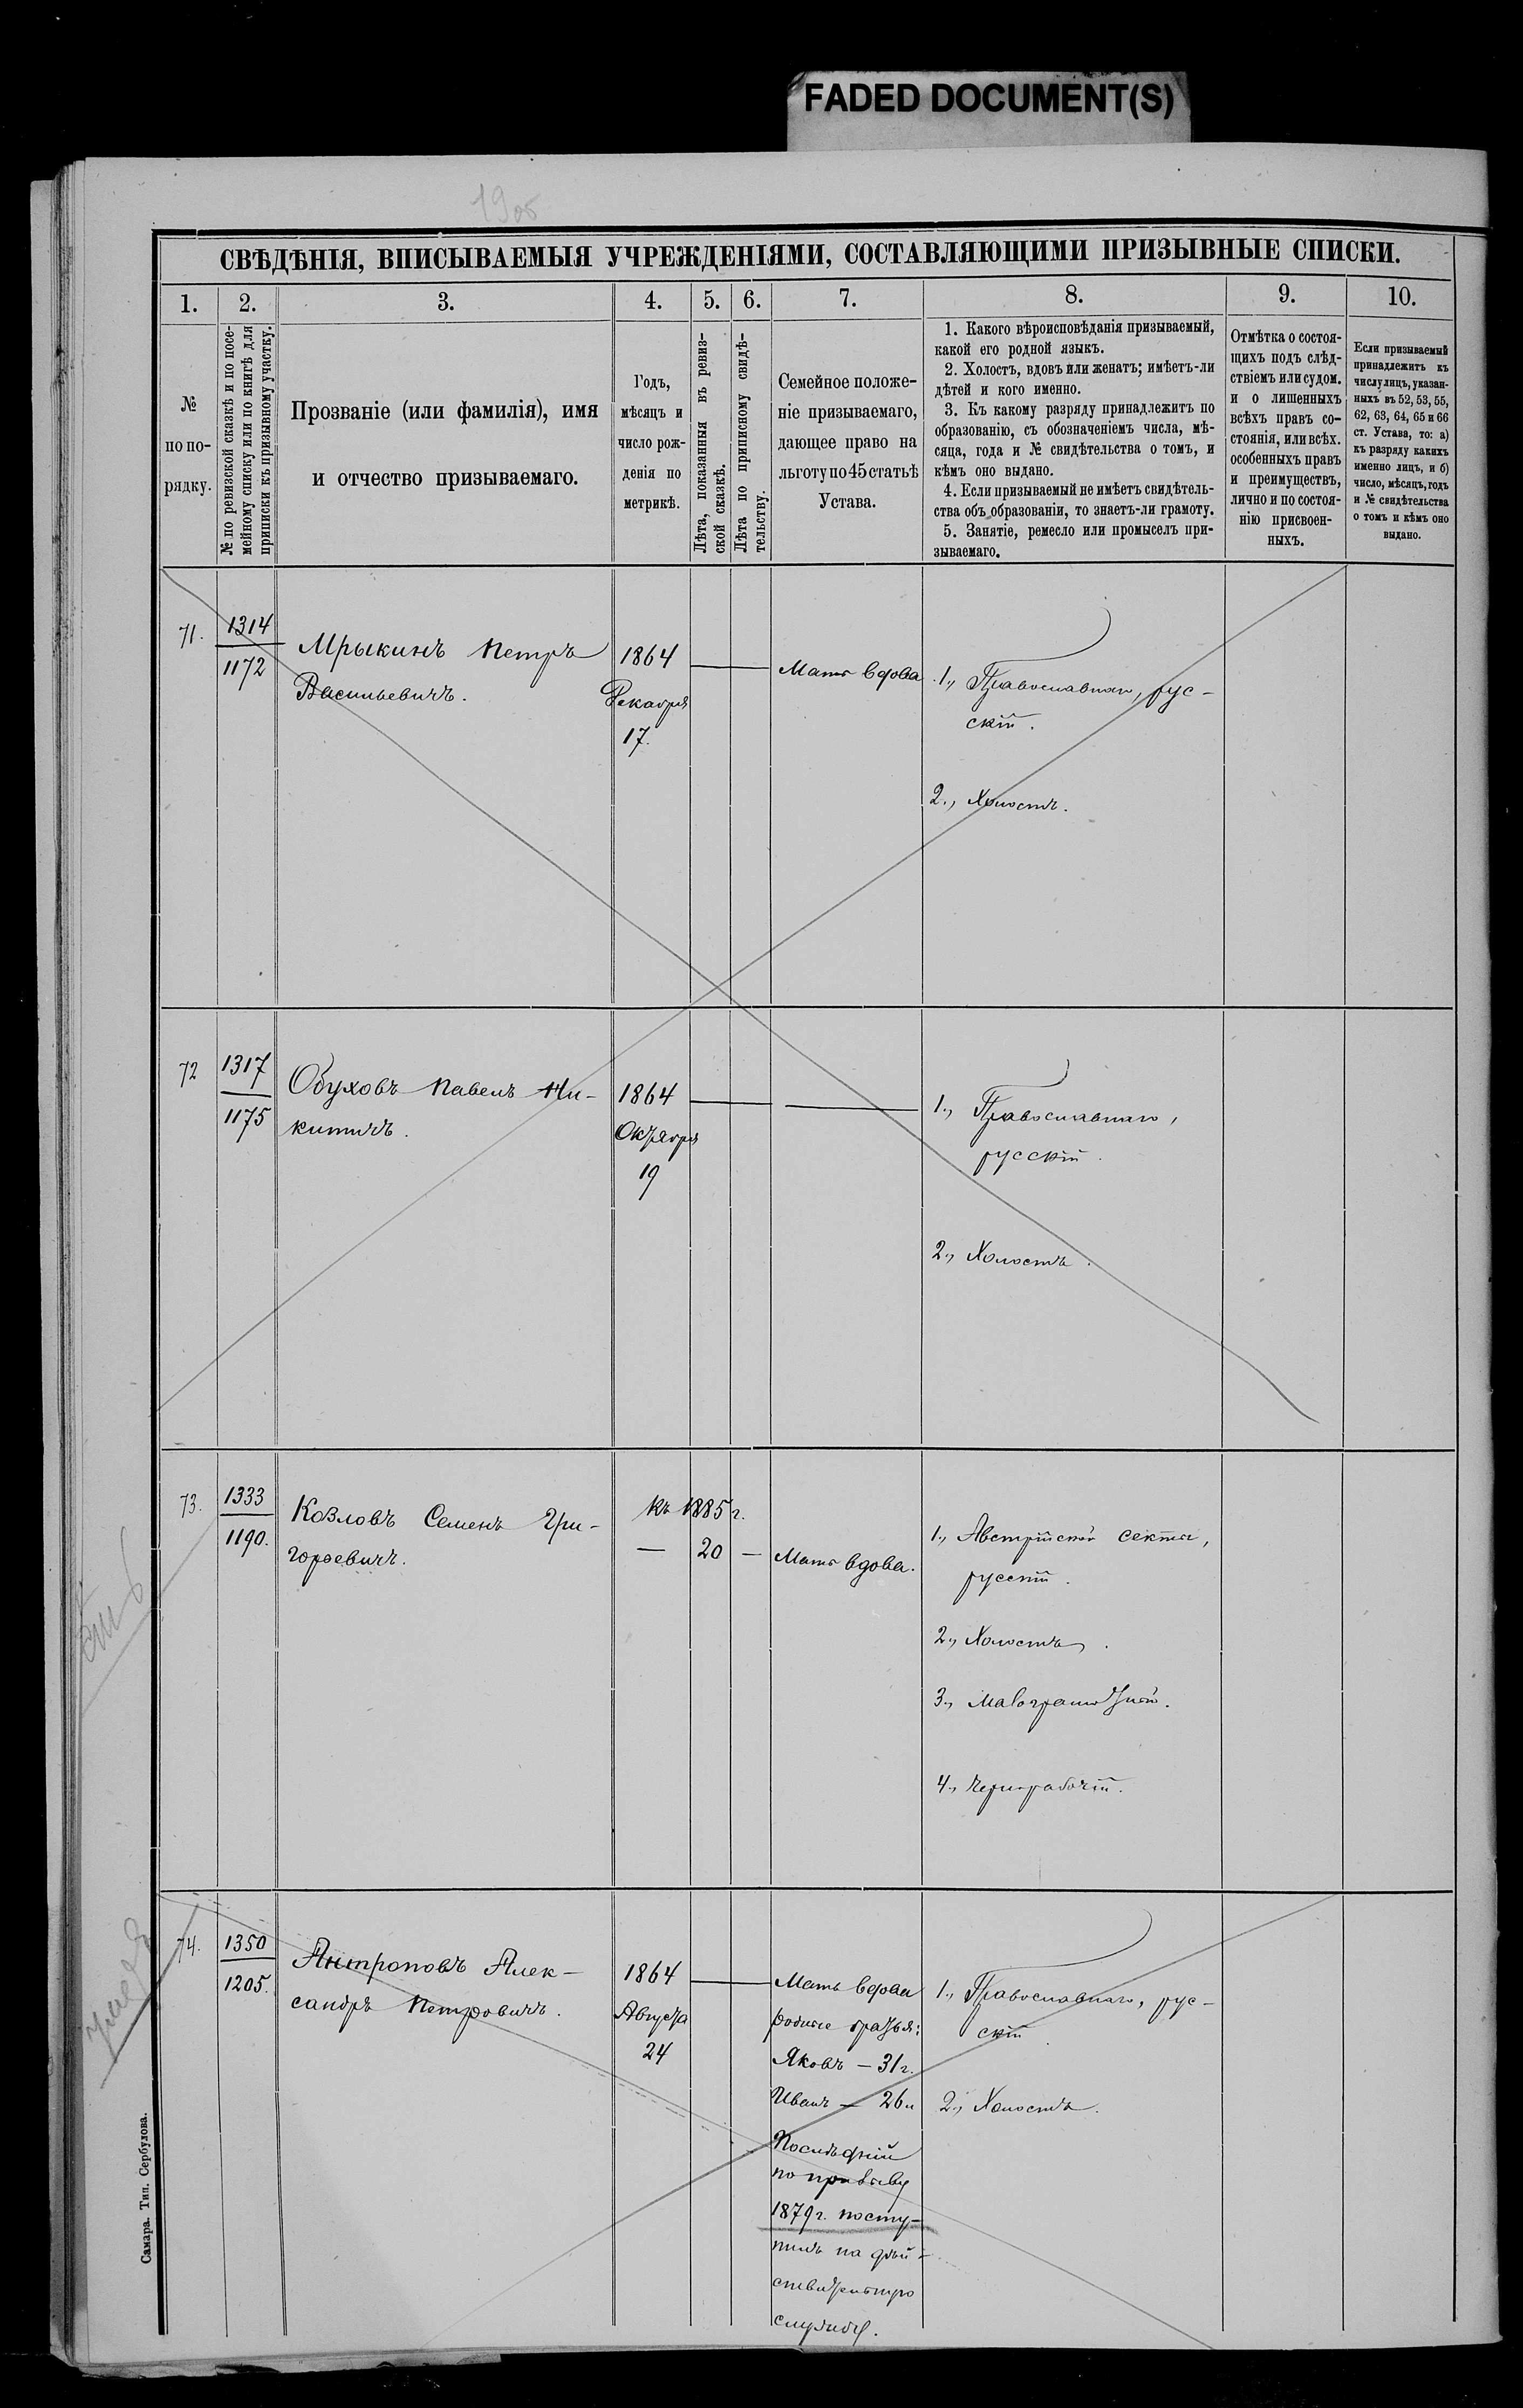 FADED DOCUMENT(S)
1905
СВѢДѢНІЯ, ВПИСЫВАЕМЫЯ УЧРЕЖДЕНІЯМИ, СОСТАВЛЯЮЩИМИ ПРИЗЫВНЫЕ СПИСКИ.
1.
№
по по-
рядку.
2.
№ по ревизской сказкѣ и по посе-
мейному списку или по книгѣ для
приписки къ призывному участку.
3.
Прозваніе (или фамилія), имя
и отчество призываемаго.
4.
Годъ,
мѣсяцъ и
число рож-
денія по
метрикѣ.
5.
Лѣта, показанныя въ ревиз-
ской сказкѣ.
6.
Лѣта по приписному свидѣ-
тельству.
7.
Семейное положе-
ніе призываемаго,
дающее право на
льготу по 45 статьѣ
Устава.
8.
1. Какого вѣроисповѣданія призываемый,
какой его родной языкъ.
2. Холостъ, вдовъ или женатъ; имѣетъ-ли
дѣтей и кого именно.
3. Къ какому разряду принадлежитъ по
образованію, съ обозначеніемъ числа, мѣ-
сяца, года и № свидѣтельства о томъ, и
кѣмъ оно выдано.
4. Если призываемый не имѣетъ свидѣтель-
ства объ образованіи, то знаетъ-ли грамоту.
5. Занятіе, ремесло или промыселъ при-
зываемаго.
9.
Отмѣтка о состоя-
щихъ подъ слѣд-
ствіемъ или судом.
и о лишенныхъ
всѣхъ правъ со-
стоянія, или всѣх.
особенныхъ правъ
и преимуществъ,
лично и по состоя-
нію присвоен-
ныхъ.
10.
Если призываемый
принадлежитъ къ
числу лицъ, указан-
ныхъ въ 52, 53, 55,
62, 63, 64, 65 и 66
ст. Устава, то: а)
къ разряду какихъ
именно лицъ, и б)
число, мѣсяцъ, годъ
и № свидѣтельства
о томъ и кѣмъ оно
выдано.
71.
1314
1172
Мрыкинъ Петръ
Васильевичъ.
1864
Декабря
17.
Мать вдова
1., Православнаго, рус-
скій.
2., Холостъ.
72
1317
1175
Обуховъ Павелъ Ни-
китичъ.
1864
Октября
19
1., Православнаго,
русскій.
2., Холостъ.
73.
1333
1190.
Козловъ Семенъ Гри-
горьевичъ.
къ 1885 г.
— 20 —
Мать вдова.
1., Австрійской секты,
русскій.
2., Холостъ.
3., Малограмотный.
4., Чернорабочій.
74.
1350
1205.
Антроповъ Алек-
сандръ Петровичъ.
1864
Августа
24
Мать вдова
родные братья:
Яковъ — 31 г.
Иванъ — 26 "
Послѣдній
по призыву
1879 г. посту-
пилъ на дѣй-
ствительную
службу.
1., Православнаго, рус-
скій
2., Холостъ.
Самара. Тип. Сербулова.